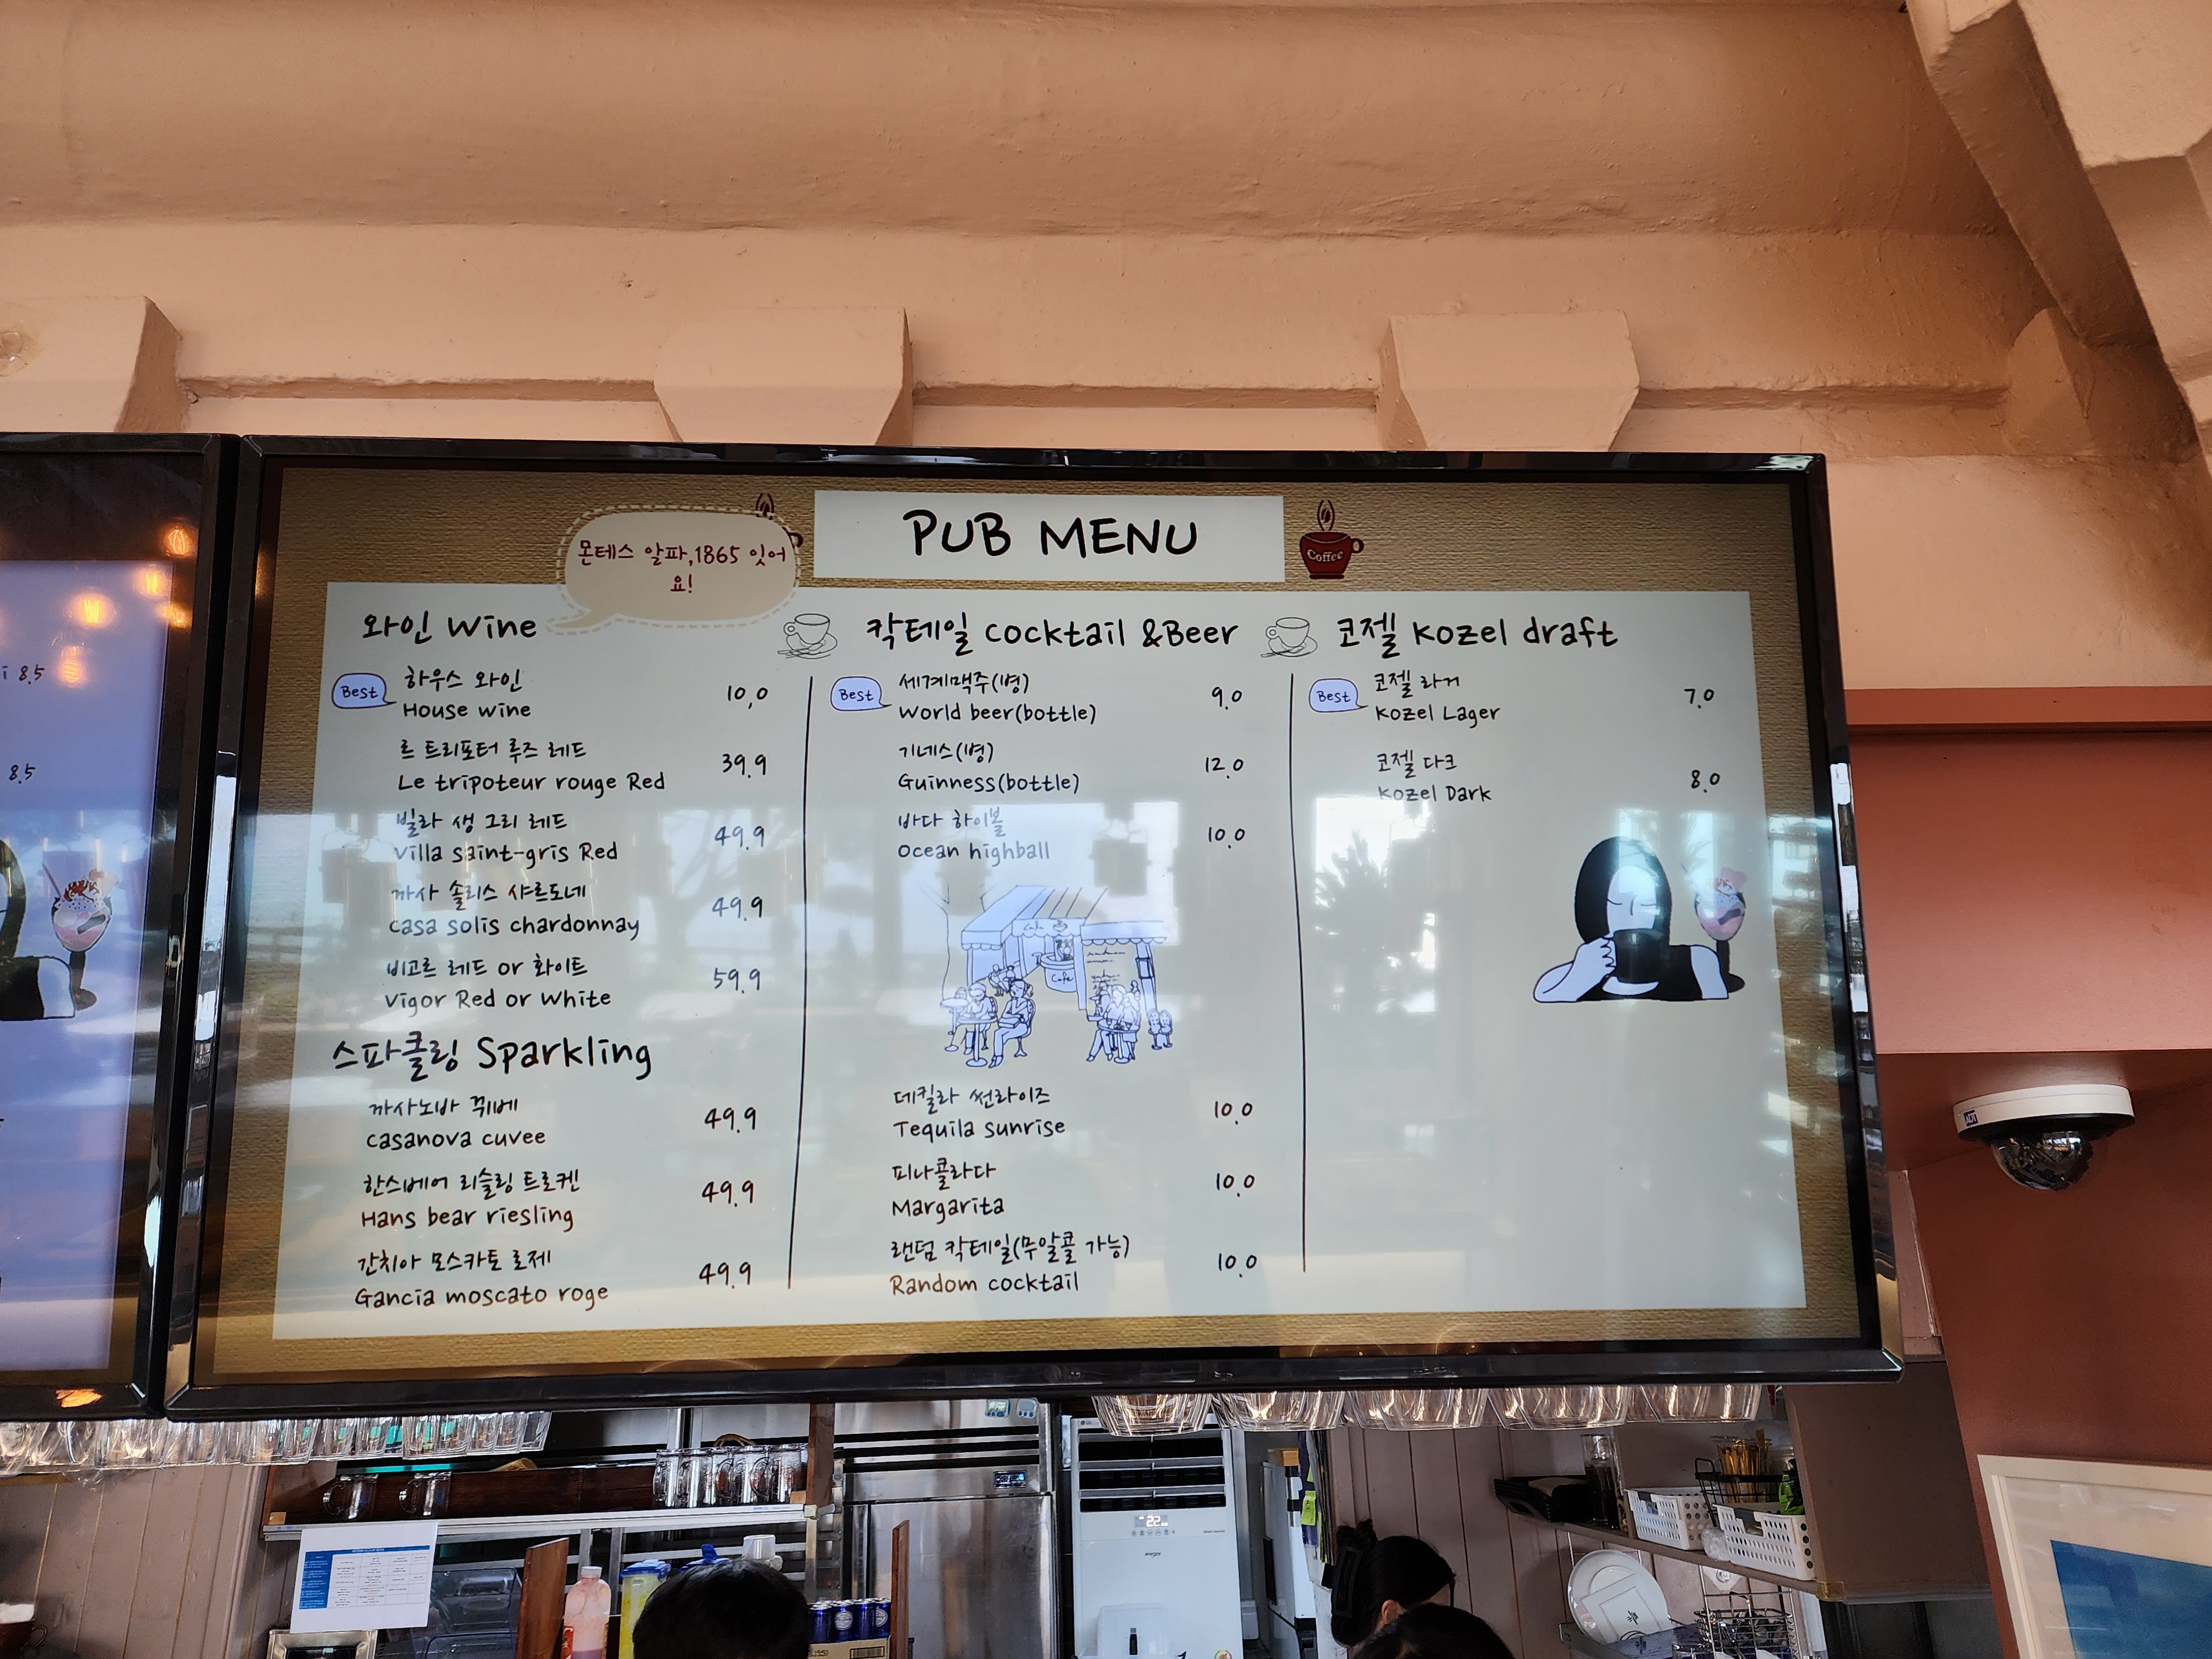 PUB MENU
몬테스 알파,1865 잇어
요!
Coffee
와인 Wine
Best
하우스 와인
House wine
10,0
르 트리포터 루즈 레드
Le tripoteur rouge Red
39.9
빌라 생 그리 레드
Villa saint-gris Red
49.9
까사 솔리스 샤르도네
casa solis chardonnay
49.9
비고르 레드 or 화이트
Vigor Red or White
59.9
스파클링 Sparkling
까사노바 뀌베
casanova cuvee
49.9
한스베어 리슬링 트로켄
Hans bear riesling
49.9
간치아 모스카토 로제
Gancia moscato roge
49.9
칵테일 cocktail &Beer
Best
세계맥주(병)
World beer(bottle)
9.0
기네스(병)
Guinness(bottle)
12.0
바다 하이볼
Ocean highball
10.0
Cafe
데킬라 썬라이즈
Tequila sunrise
10.0
피나콜라다
Margarita
10.0
랜덤 칵테일(무알콜 가능)
Random cocktail
10.0
코젤 Kozel draft
Best
코젤 라거
Kozel Lager
7.0
코젤 다크
Kozel Dark
8.0
i 8.5
8.5
ADT
22